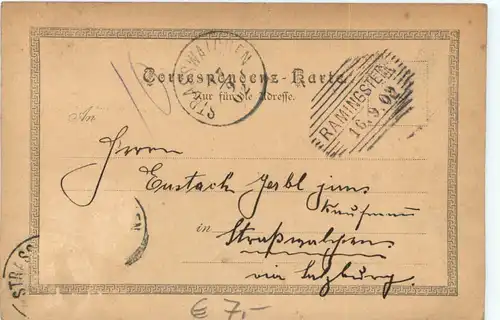 STRASSWALCHEN
Correspondenz-Karte
Nur für die Adresse.
RAMINGSTEIN
16.9.02
An
Herrn
Eustach Jerbl jun:
Kaufmann
in
Straßwalchen
via Salzburg.
STRASS
€ 7,-